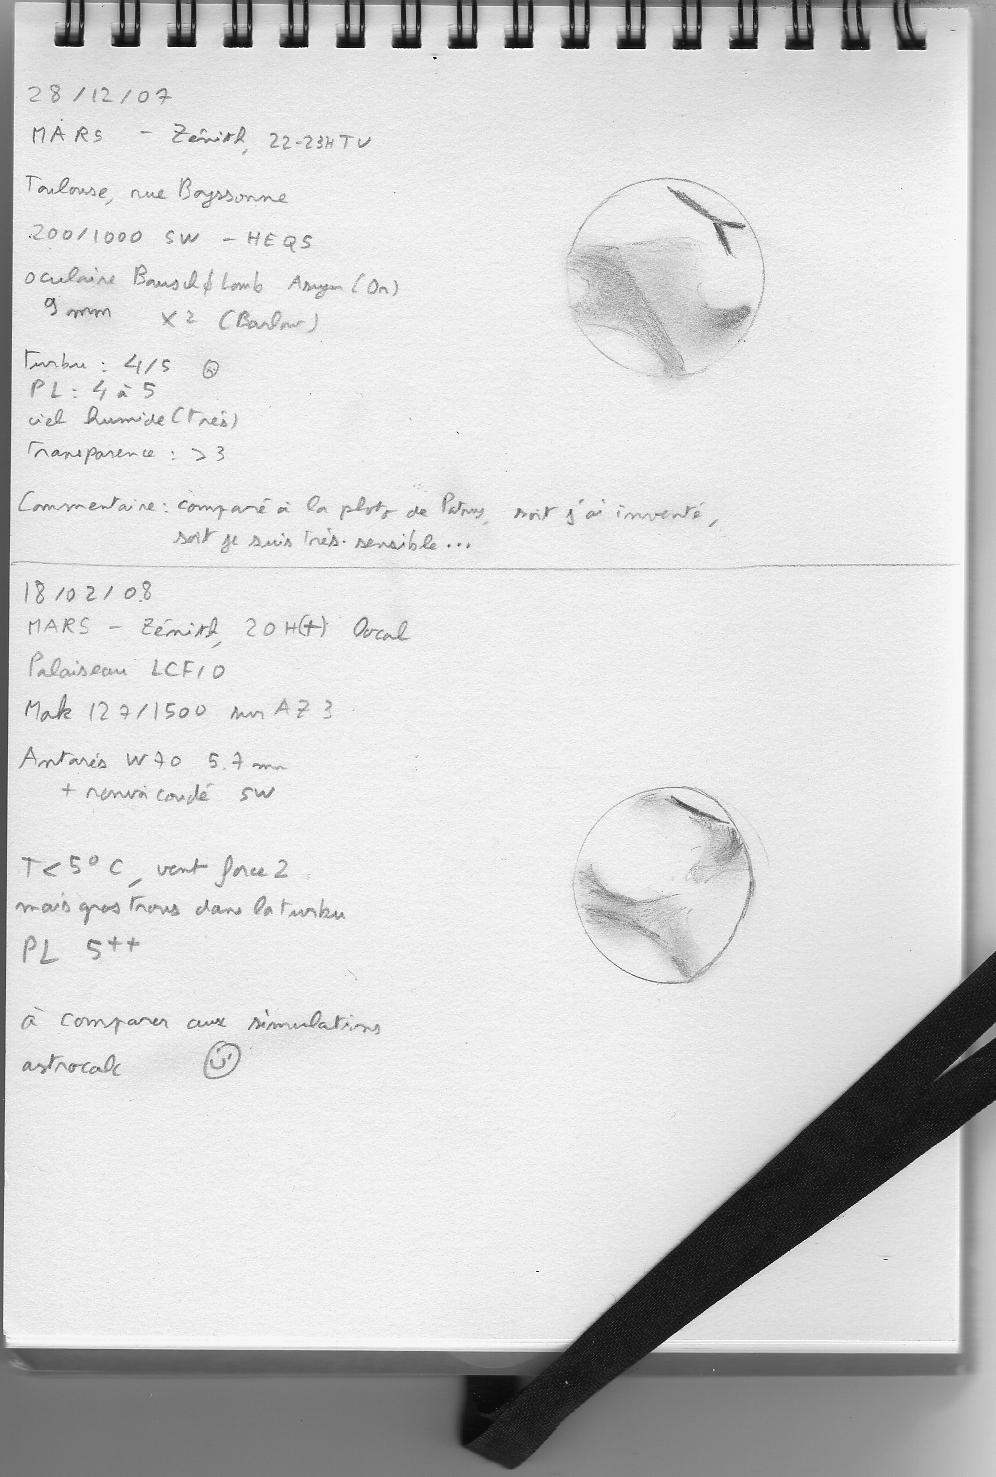 28/12/07
MARS - Zénith, 22-23H TU
Toulouse, rue Boyssonne
200/1000 SW - HEQ5
oculaire Bausch & Lomb (Or)
9 mm x2 (Barlow)
turbu : 4/5
PL : 4 à 5
ciel humide (très)
Transparence : >3
Commentaire : comparé à la photo de soit j'ai inventé,
soit je suis très sensible...
18/02/08
MARS - Zénith, 20H(+) local
Palaiseau LCFIO
Mak 127/1500 sur AZ3
Antarès W70 5.7 mm
+ renvoi coudé SW
T<5°C, vent force 2
mais gros trous dans la turbu
PL 5++
à comparer aux simulations
astrocalc